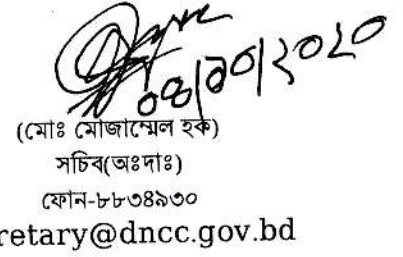 ০৪/১০/২০২০
(মোঃ মোজাম্মেল হক)
সচিব(অঃদাঃ)
ফোন-৮৮৩৪৯৩০
retary@dncc.gov.bd